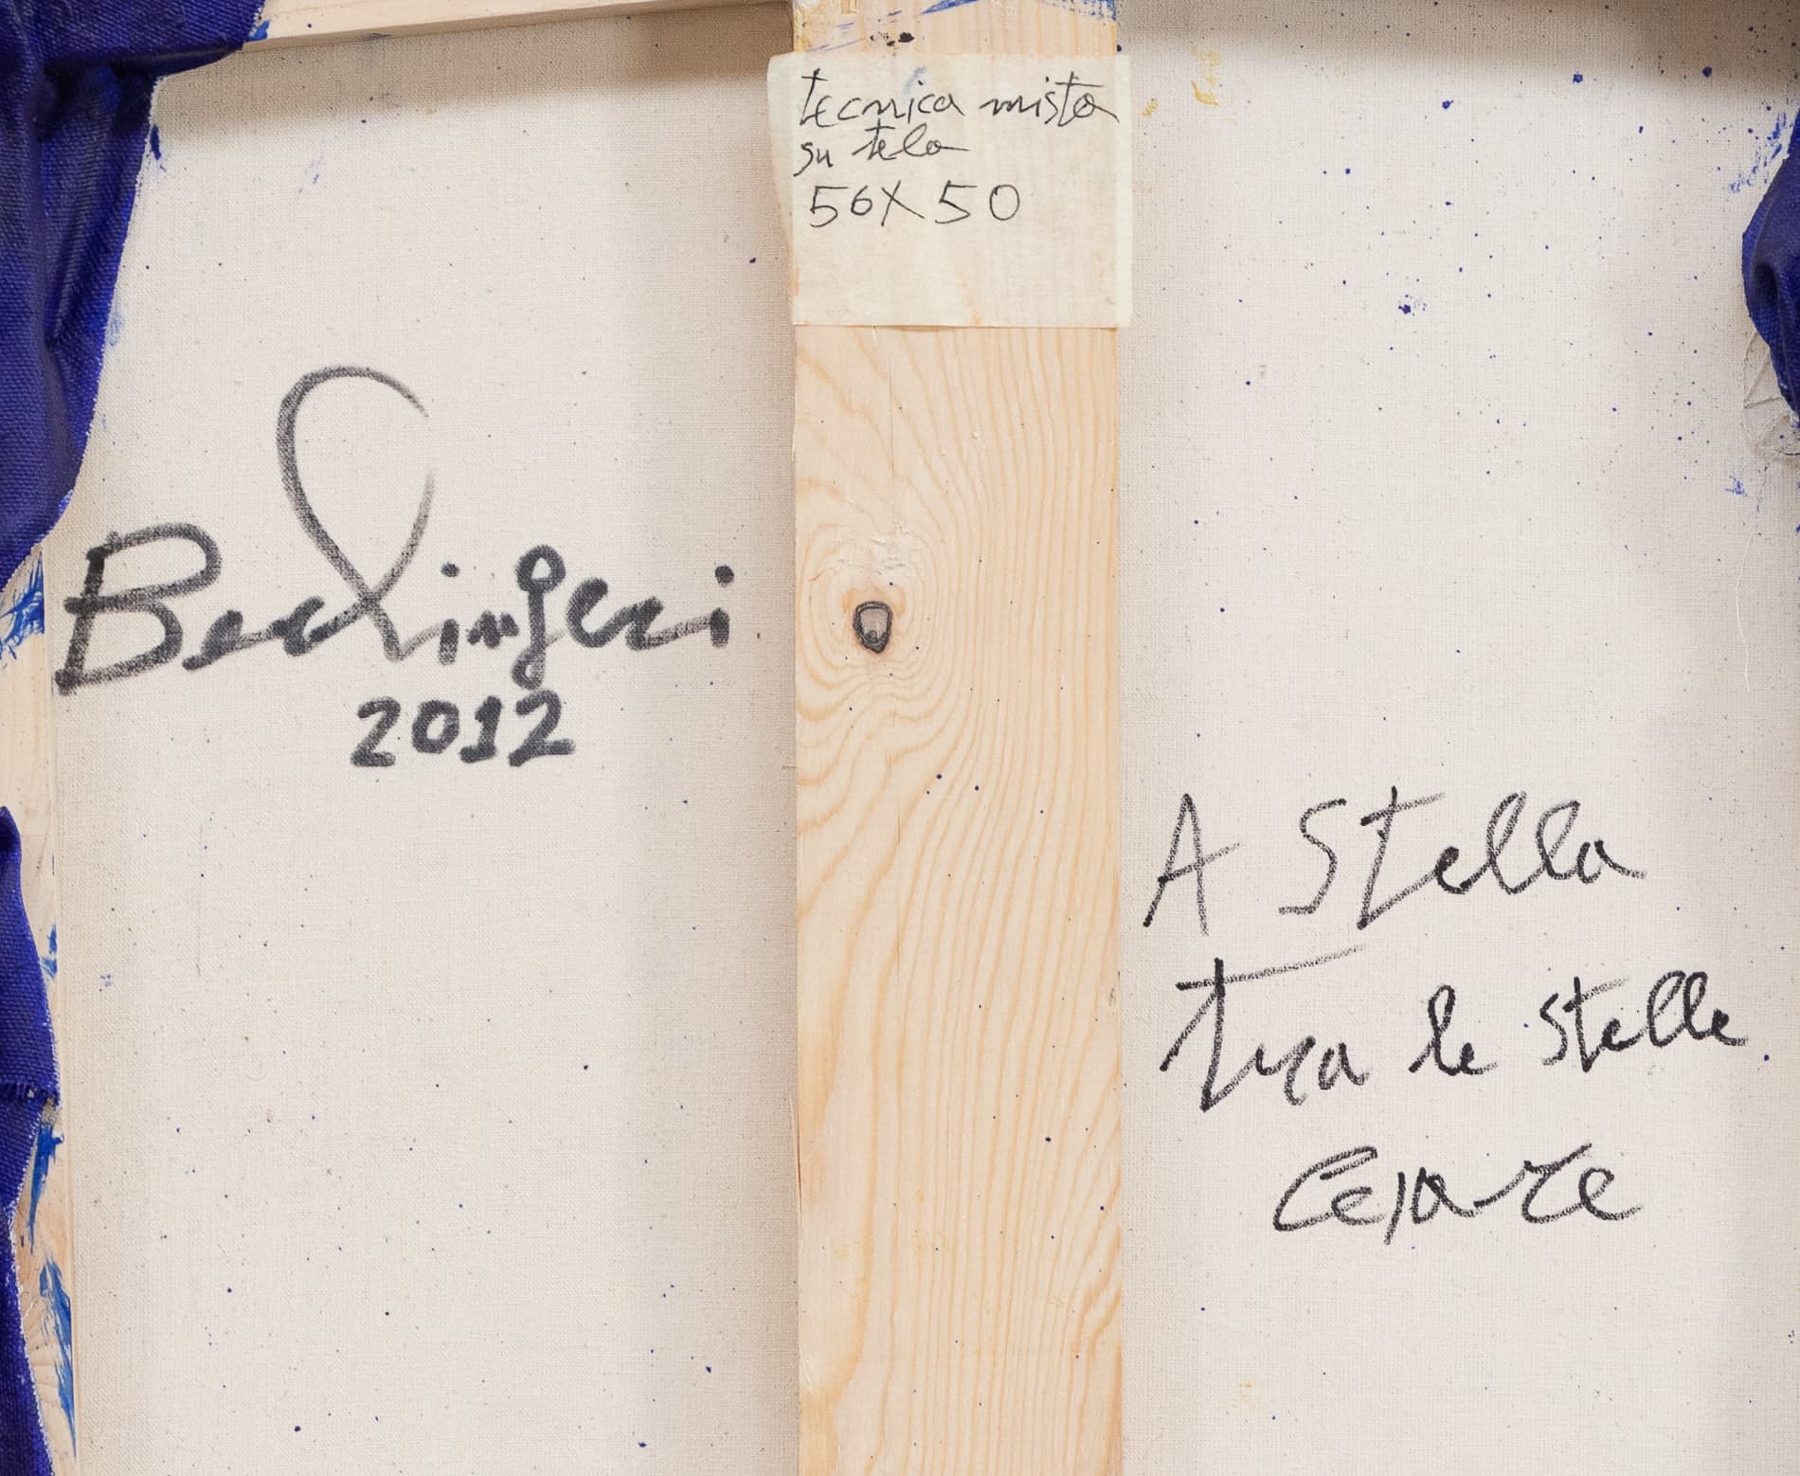 tecnica mista
su tela
56X50
Berlingeri
2012
A Stella
tra le stelle
Cesare